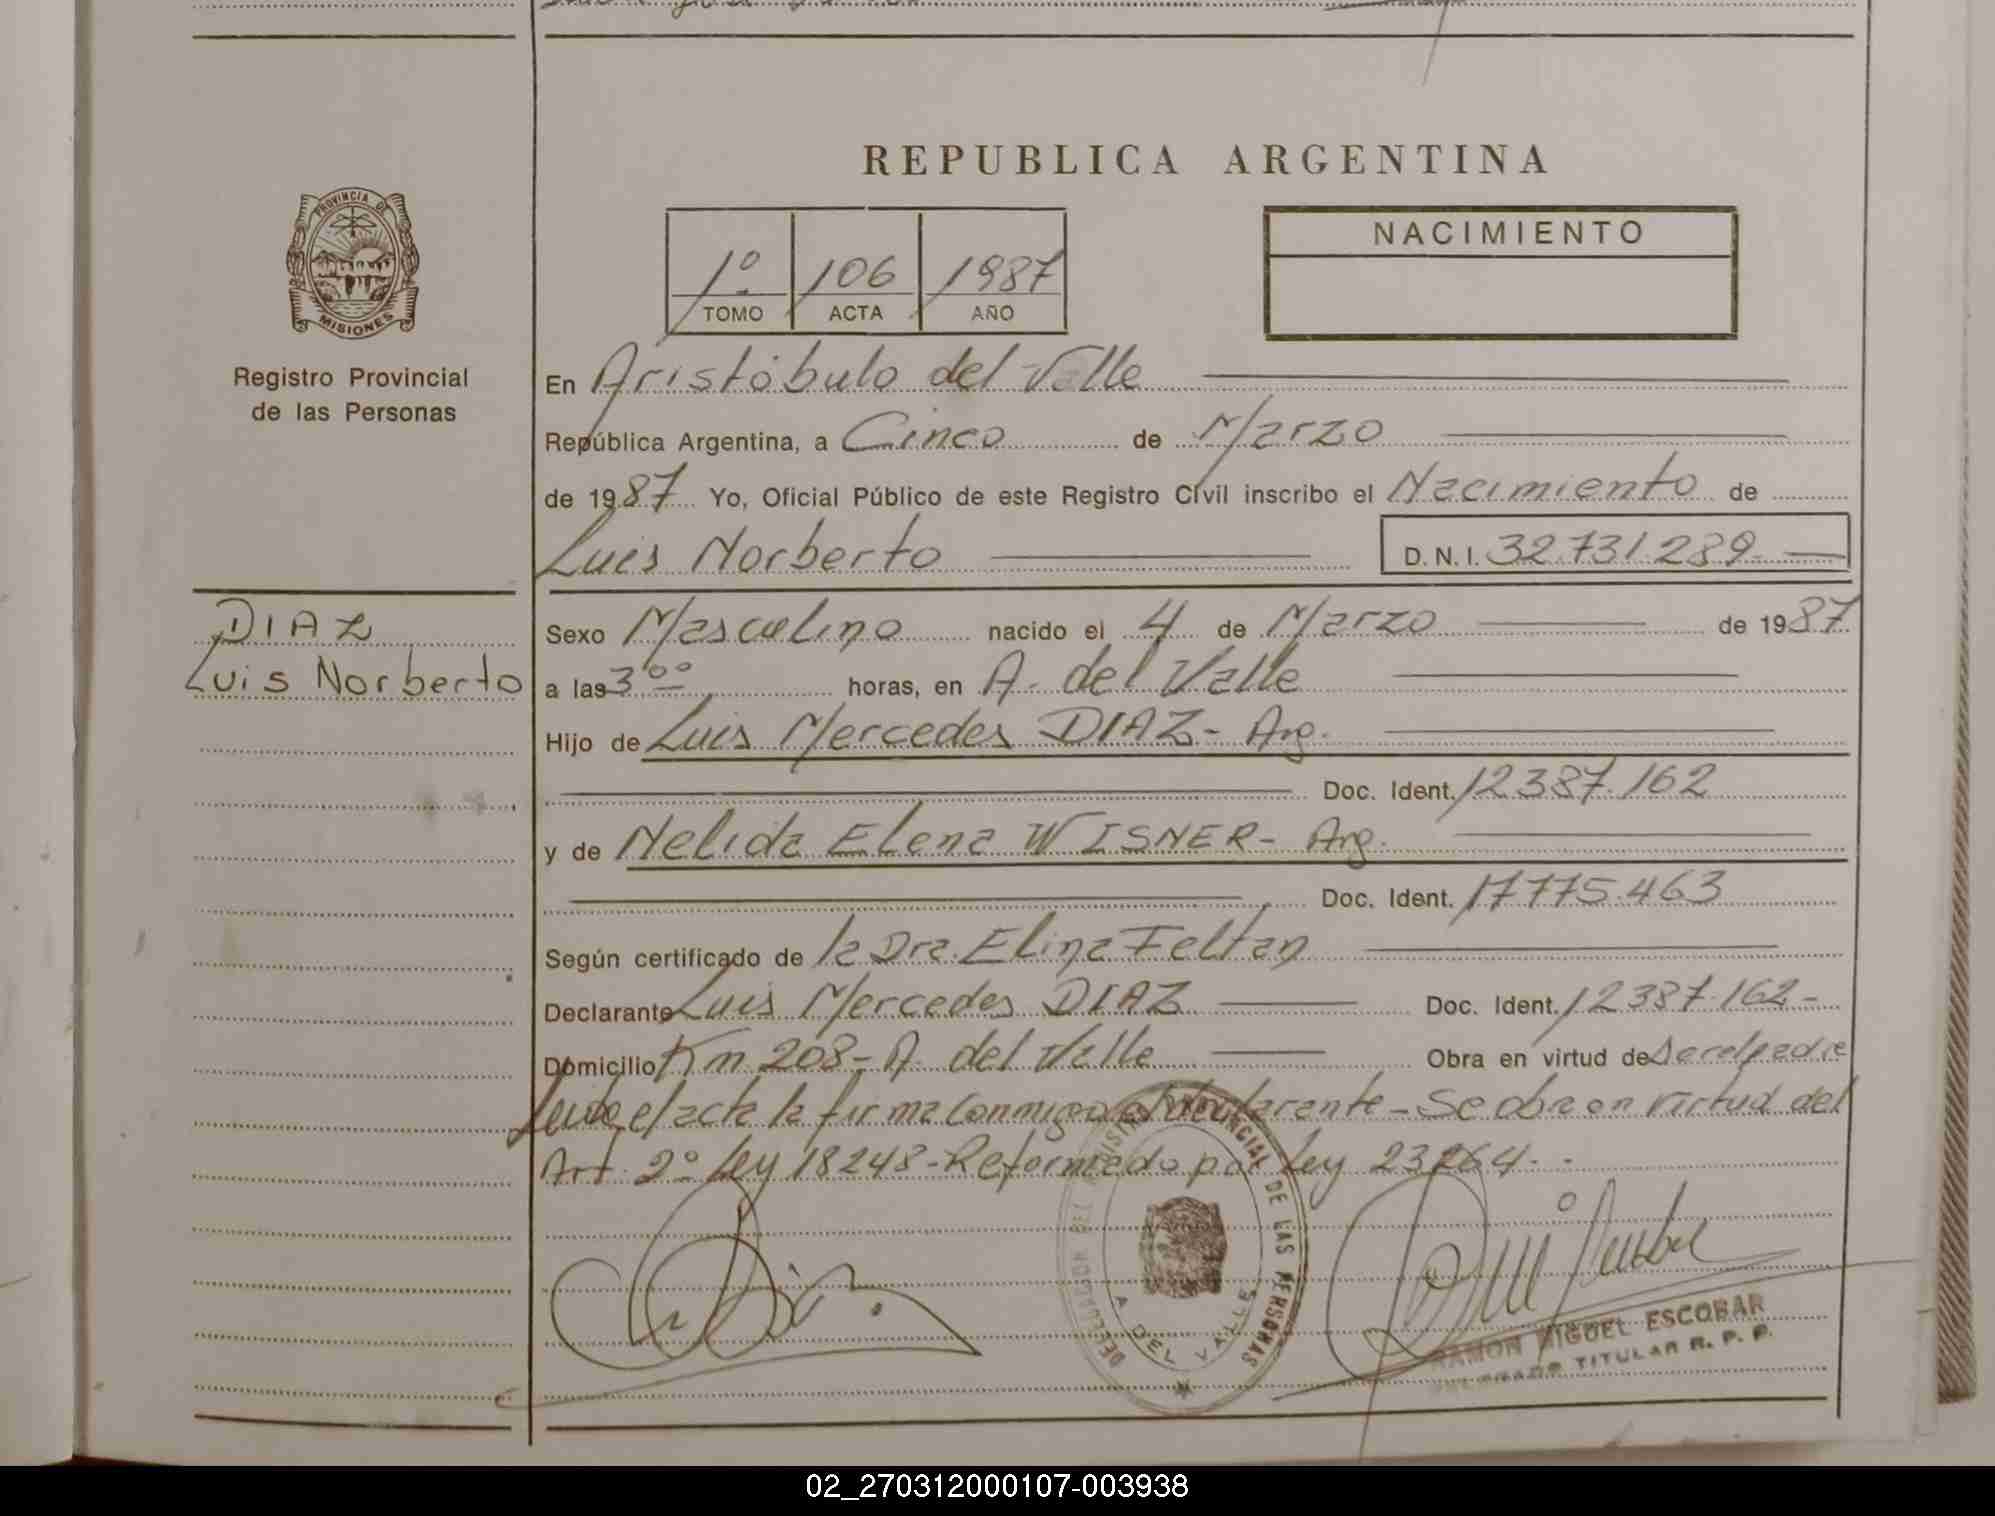 REPUBLICA ARGENTINA
PROVINCIA DE
MISIONES
Registro Provincial
de las Personas
1º 106 1987
TOMO ACTA AÑO
NACIMIENTO
En Aristóbulo del Valle
República Argentina, a Cinco de Marzo
de 1987 Yo, Oficial Público de este Registro Civil inscribo el Nacimiento de
Luis Norberto D.N.I. 32.731.289
DIAZ
Luis Norberto
Sexo Masculino nacido el 4 de Marzo de 1987
a las 3ºº horas, en A. del Valle
Hijo de Luis Mercedes DIAZ - Arg.
Doc. Ident. 12387.162
y de Nelida Elena WISNER - Arg.
Doc. Ident. 17775.463
Según certificado de la Dra. Elina Feltan
Declarante Luis Mercedes DIAZ Doc. Ident. 12387.162-
Domicilio Km 208 - A. del Valle Obra en virtud de Ser el padre
Leida el acta la firma conmigo el declarante - Se obra en virtud del
Art. 2º Ley 18248 - Reformado por Ley 23264.-
DELEGACION DEL REGISTRO PROVINCIAL DE LAS PERSONAS
A DEL VALLE
RAMON MIGUEL ESCOBAR
DELEGADO TITULAR R. P. P.
02_270312000107-003938